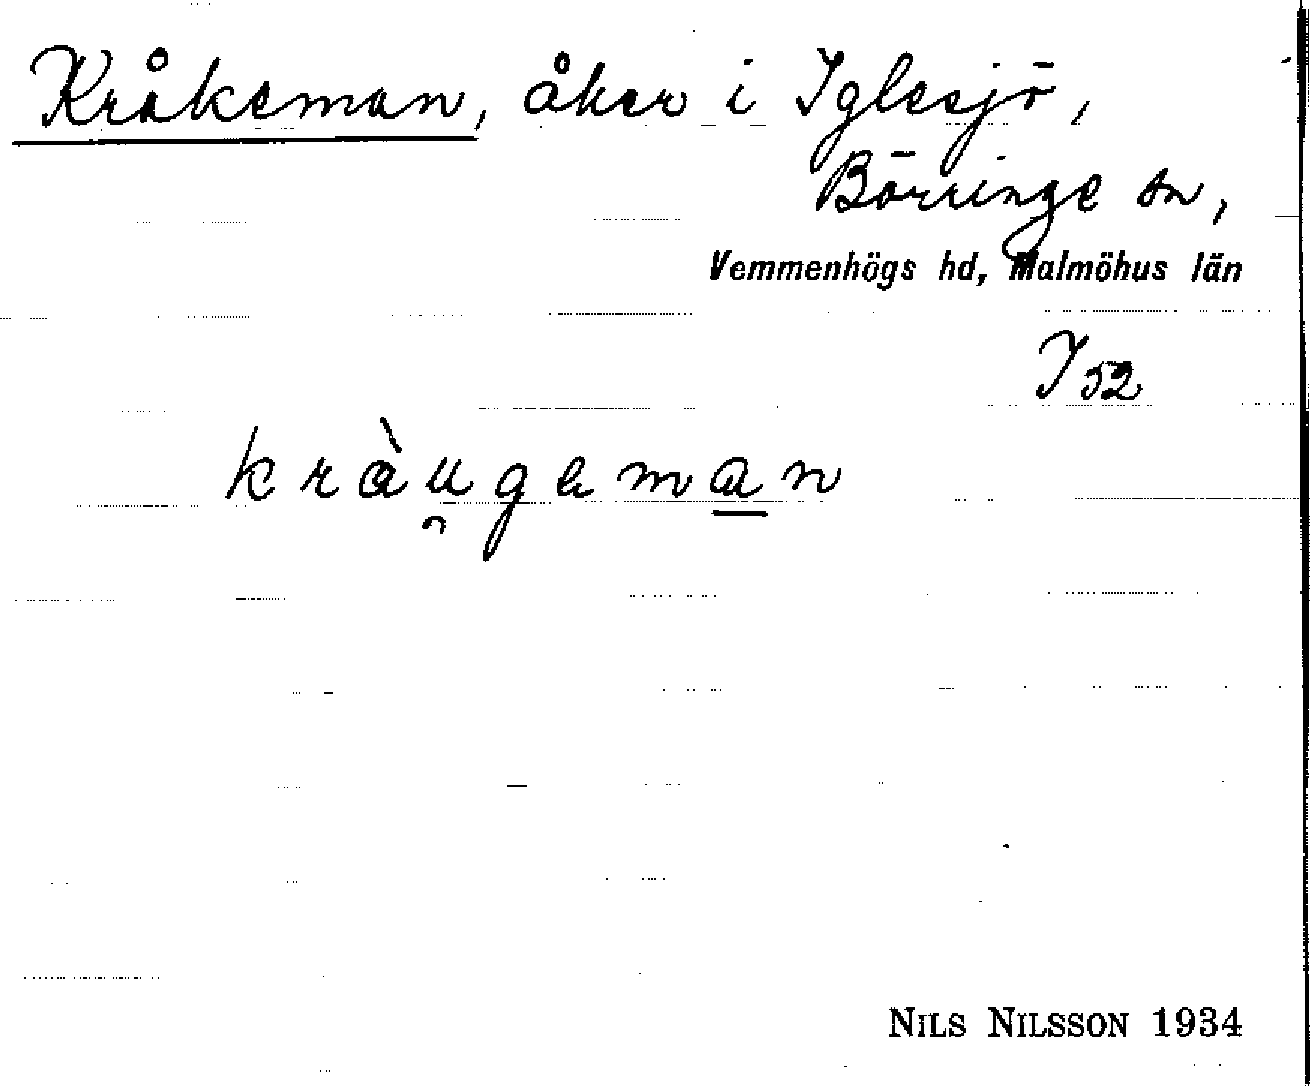 Kråkeman, åker i Iglesjö,
Börringe sn,
Vemmenhögs hd, Malmöhus län
I 52
kràu̯gəman
NILS NILSSON 1934